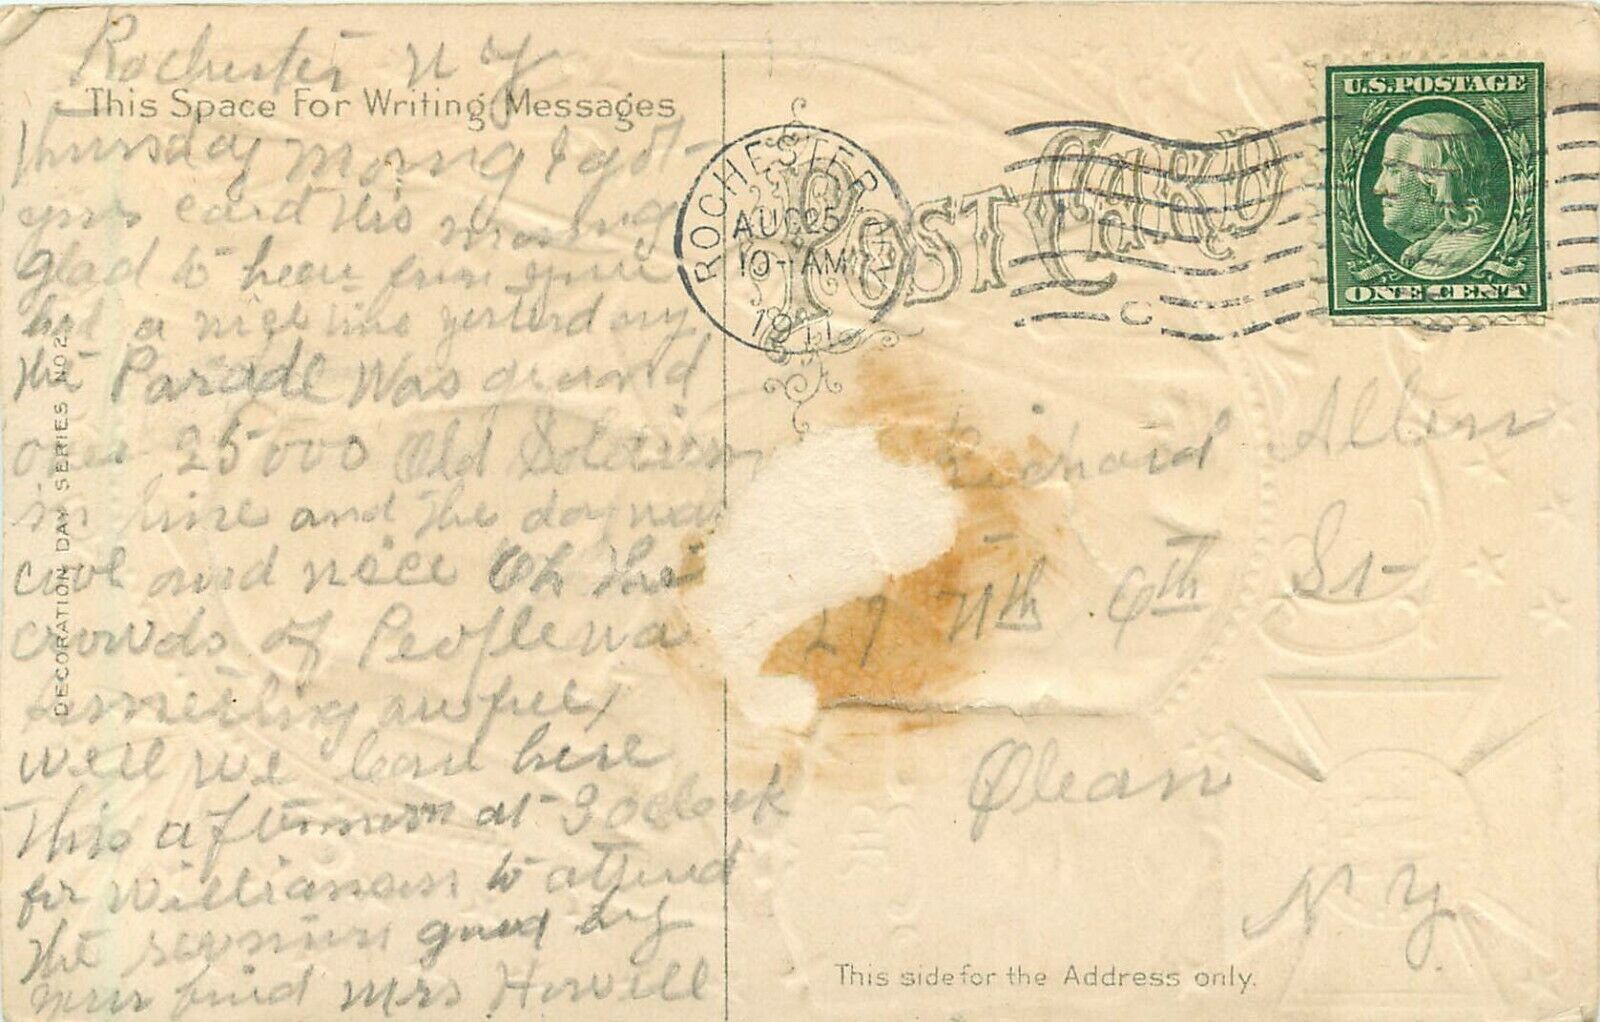 Rochester N Y
This Space For Writing Messages
Thursday morng I got
your card this morning
glad to hear from you
had a nice time yesterday
the Parade was grand
over 25000 Old Soldiers
in line and the day was
cool and nice Oh the
crowds of People was
something awful
well we leave here
This afternoon at 3 oclock
for to attend
the good by
your frind Mrs Howell
DECORATION DAY SERIES NO 2
ROCHESTER N.Y.
AUG 25
10-AM
1911
C
POST CARD
U.S. POSTAGE
ONE CENT
Richard Allen
27 Nth 6th St
Olean
N Y
This side for the Address only.